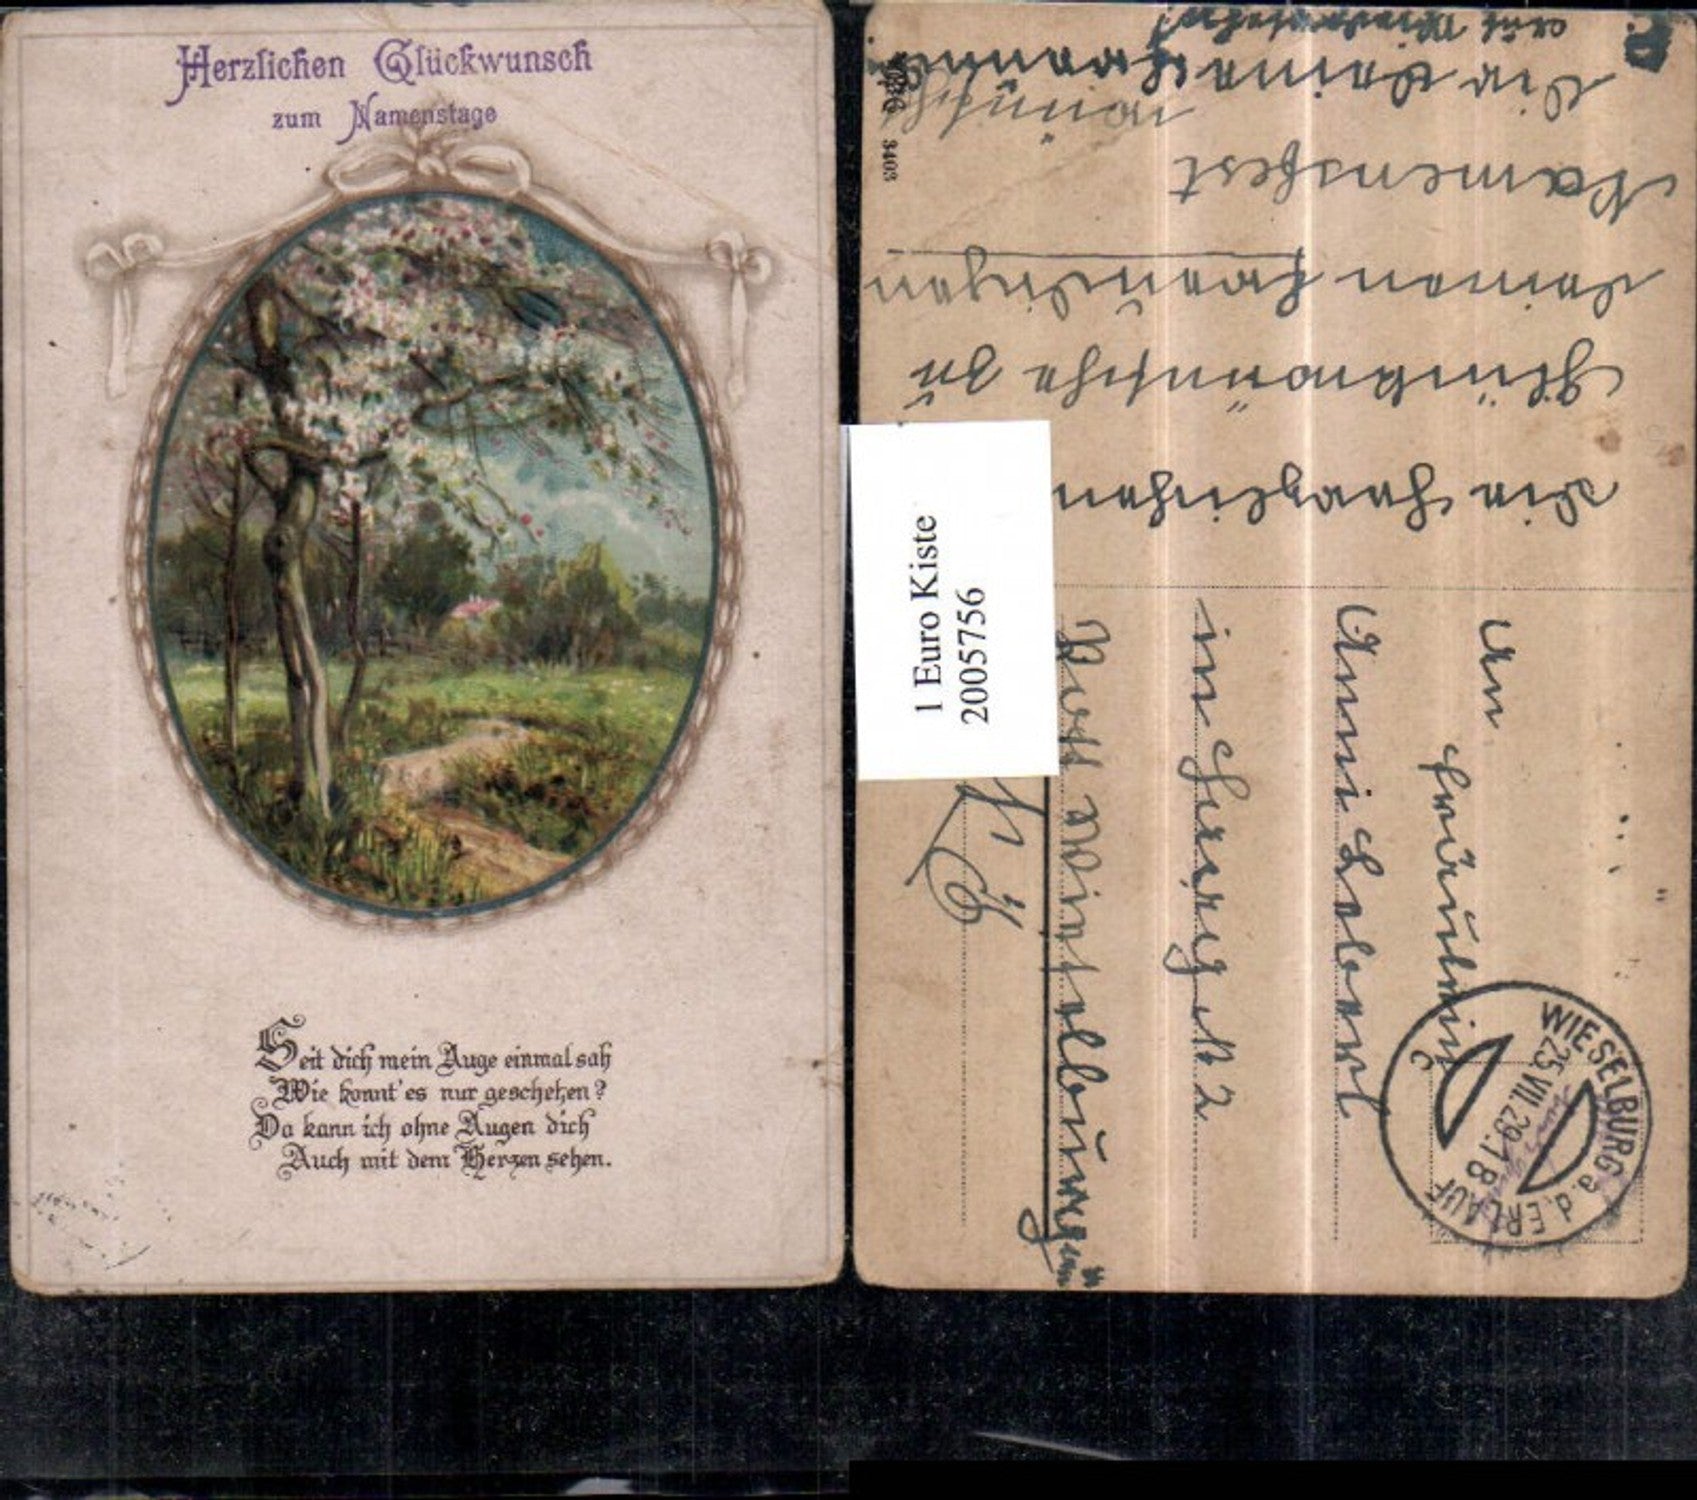 Herzlichen Glückwunsch
zum Namenstage
Seit dich mein Auge einmal sah
Wie konnt' es nur geschehen?
Da kann ich ohne Augen dich
Auch mit dem Herzen sehen.
1 Euro Kiste
2005756
3403
Die Herzlichen
Glückwünsche zu
Deinen freundigen
Namensfest
wünscht
Dir Deine
An
Fräulein
Anni
in
2
Post Wieselburg
WIESELBURG a. d. ERLAUF
25.VII.29.18
C